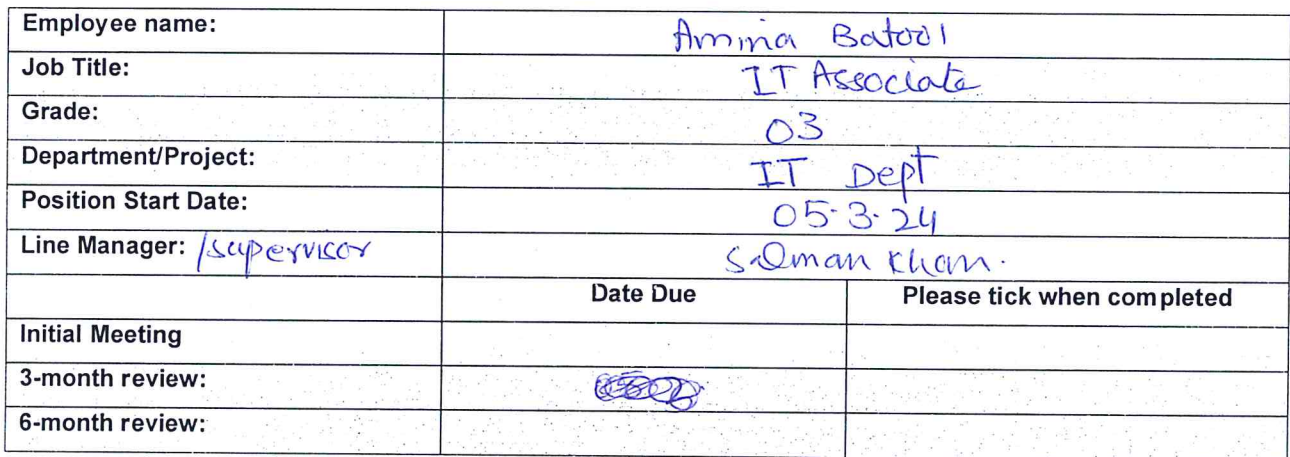 Employee name: Amina Batool
Job Title: IT Associate
Grade: 03
Department/Project: IT Dept
Position Start Date: 05.3.24
Line Manager: /supervisor Salman Khan.
Date Due Please tick when completed
Initial Meeting
3-month review:
6-month review: